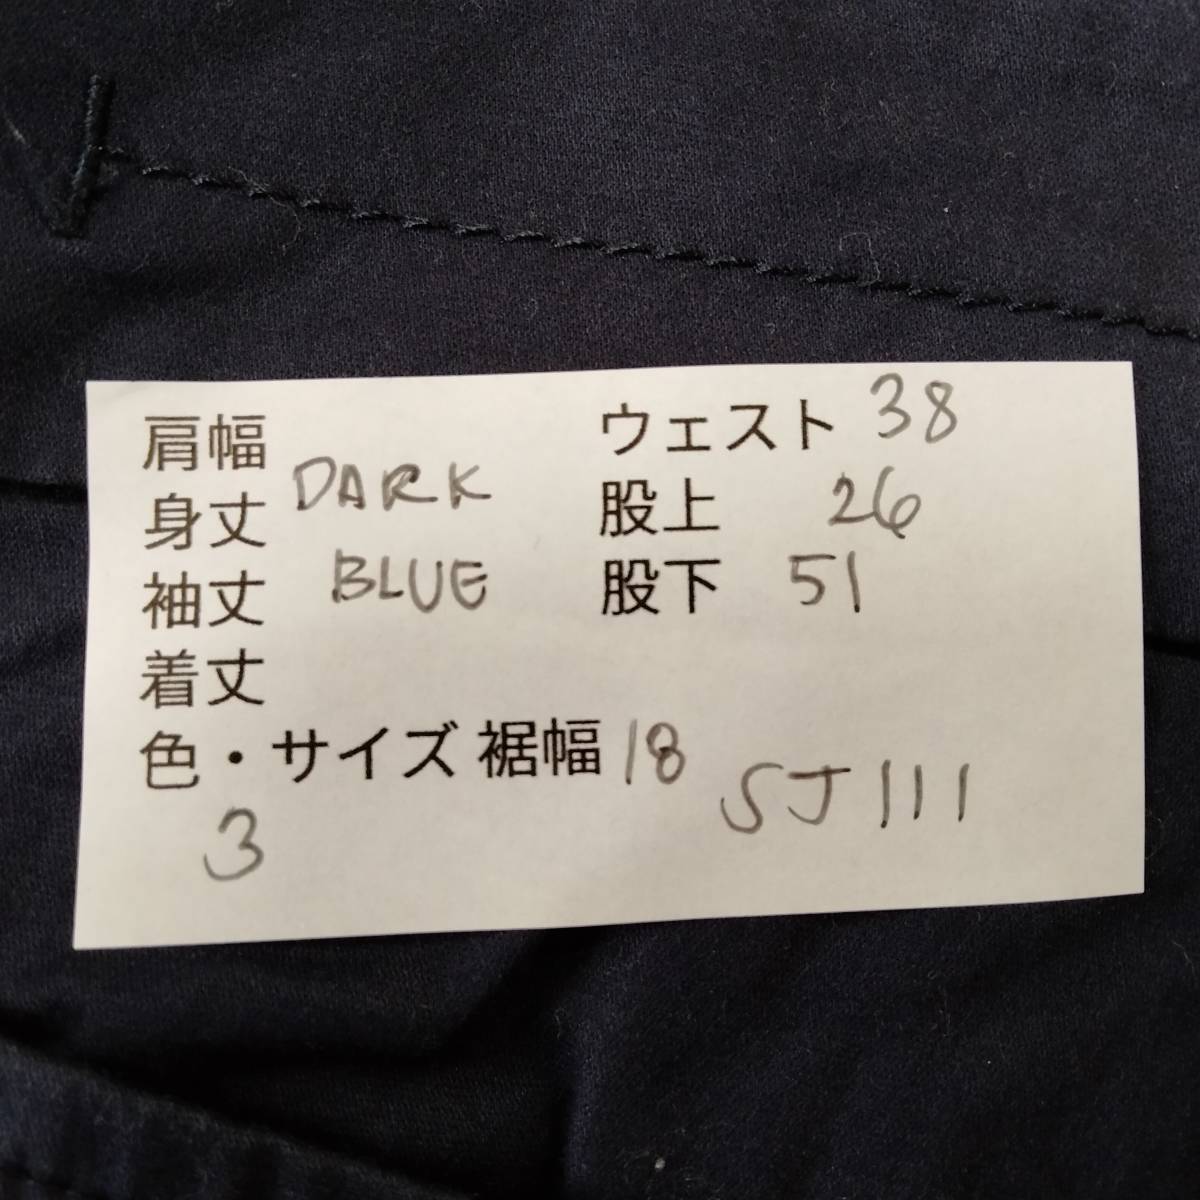 肩幅
DARK
身丈
BLUE
袖丈
着丈
色・サイズ 裾幅 18
3
ウェスト 38
股上 26
股下 51
SJ111